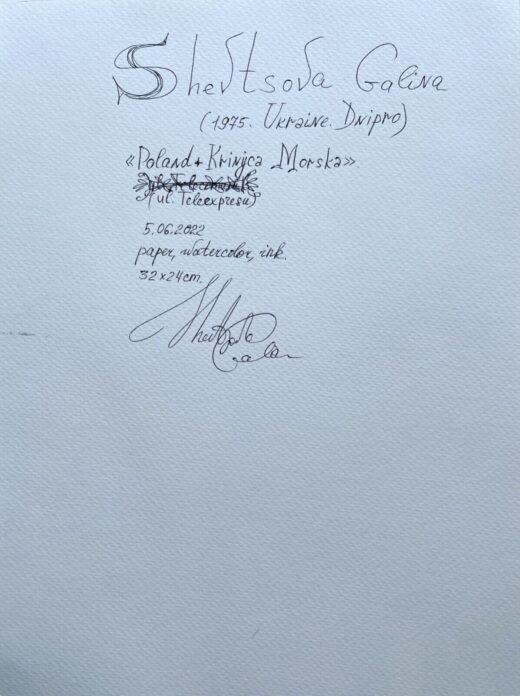 Shevtsova Galina
(1975. Ukraine. Dnipro)
«Poland + Krinjca Morska».
(ul. Teleexpresu)
5.06.2022
paper, watercolor, ink.
32x24cm.